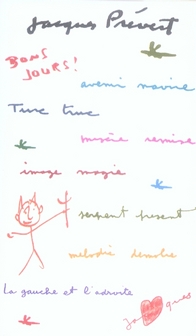 Jacques Prévert
BONS
JOURS!
avenir navire
Truc truc
misère remise
image magie
serpent présent
mélodie démolie
La gauche et l'adroite
Jacques